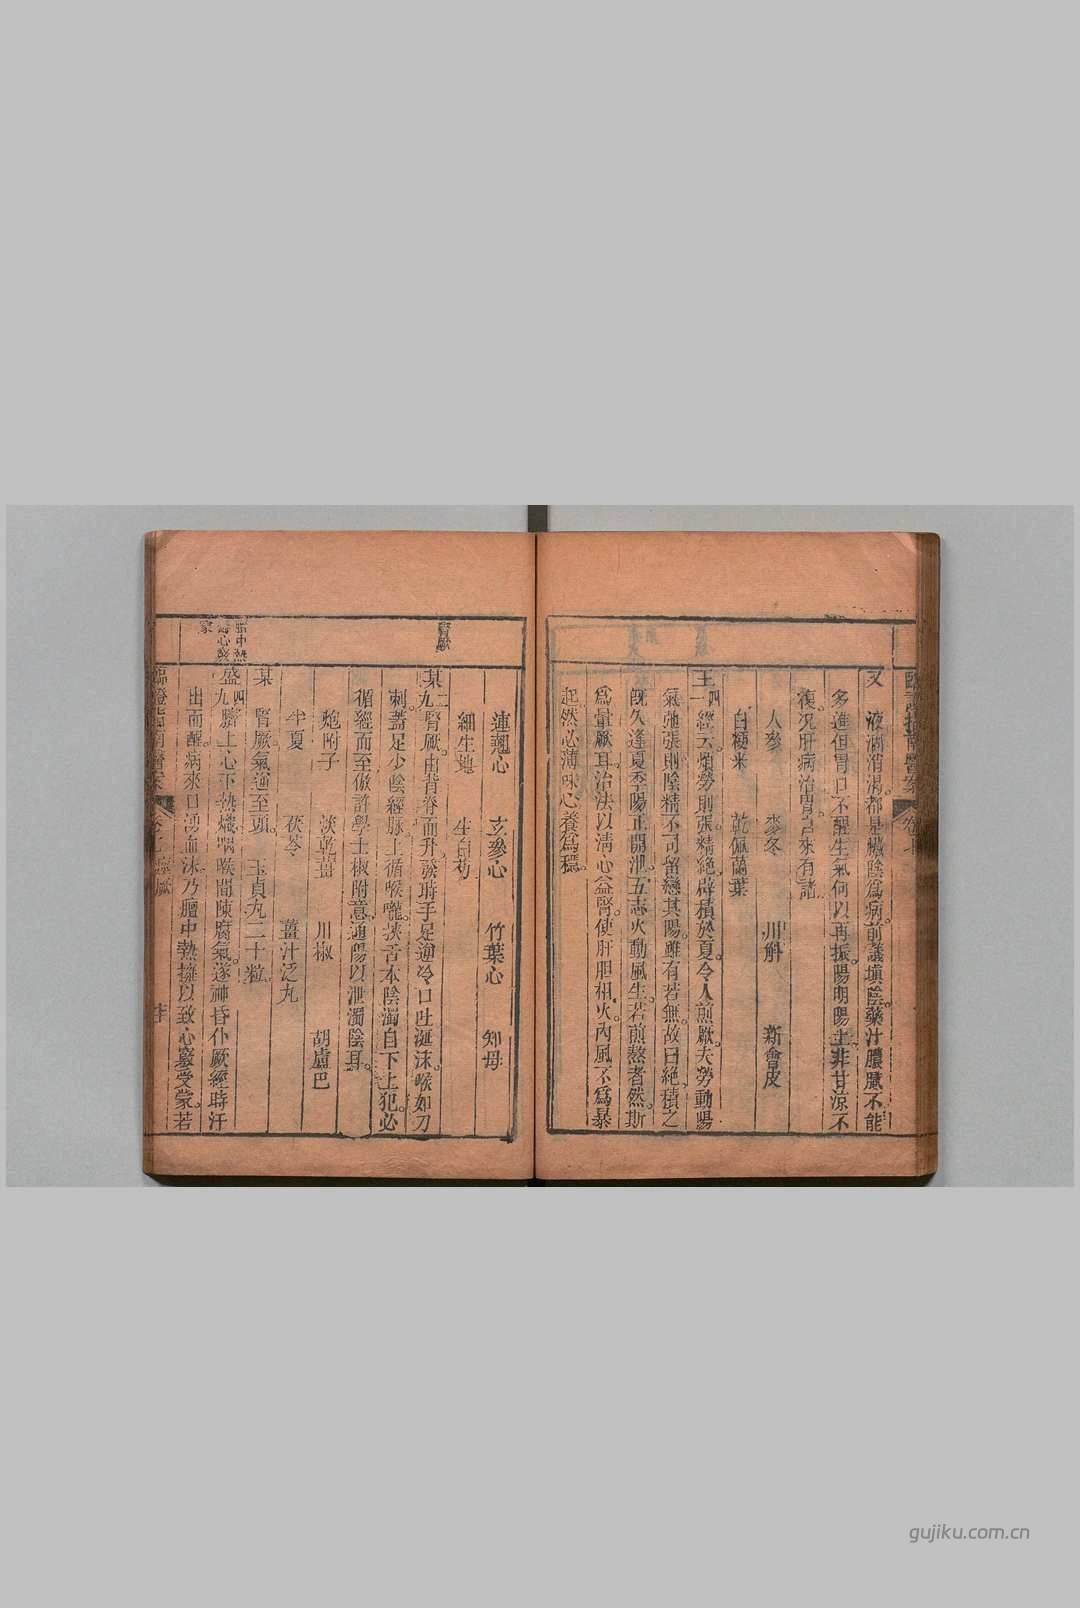 又 液涸消渴。都是臟陰為病。前議塡陰。藥汁膿膩。不能
多進。但胃口不醒。生氣何以再振。陽明陽土。非甘涼不
復。况肝病治胃。自來有諸
人參 麥冬 川斛 新會皮
白粳米 乾佩蘭葉
王四一 經云。煩勞則張。精絕。辟積於夏。令人煎厥。夫勞動陽
氣弛張。則陰精不司留戀其陽。雖有若無。故曰絕。積之
旣久。逢夏季陽正開泄。五志火動風生。若煎熬者然。斯
為暈厥耳。治法以清心益腎。使肝胆相火內風不為暴
起。然必薄味心養為穩。
連翹心 玄參心 竹葉心 知母
細生地 生白芍
腎厥
某二九 腎厥。由背脊而升。發時手足逆冷。口吐涎沫。喉如刀
刺。蓋足少陰經脉。上循喉嚨。挾舌本。陰濁自下上犯。必
循經而至。倣許學士椒附意。通陽以泄濁陰耳。
炮附子 淡乾薑 川椒 胡蘆巴
半夏 茯苓 薑汁泛丸
某 腎厥氣逆至頭。 玉真丸二十粒。
膻中熱
盛四九 臍上心下熱熾。咽喉間陳腐氣。遂神昏仆厥。經時汗
出而醒。病來口湧血沫。乃膻中熱擁以致心竅受蒙。若
臨證指南醫案 卷七